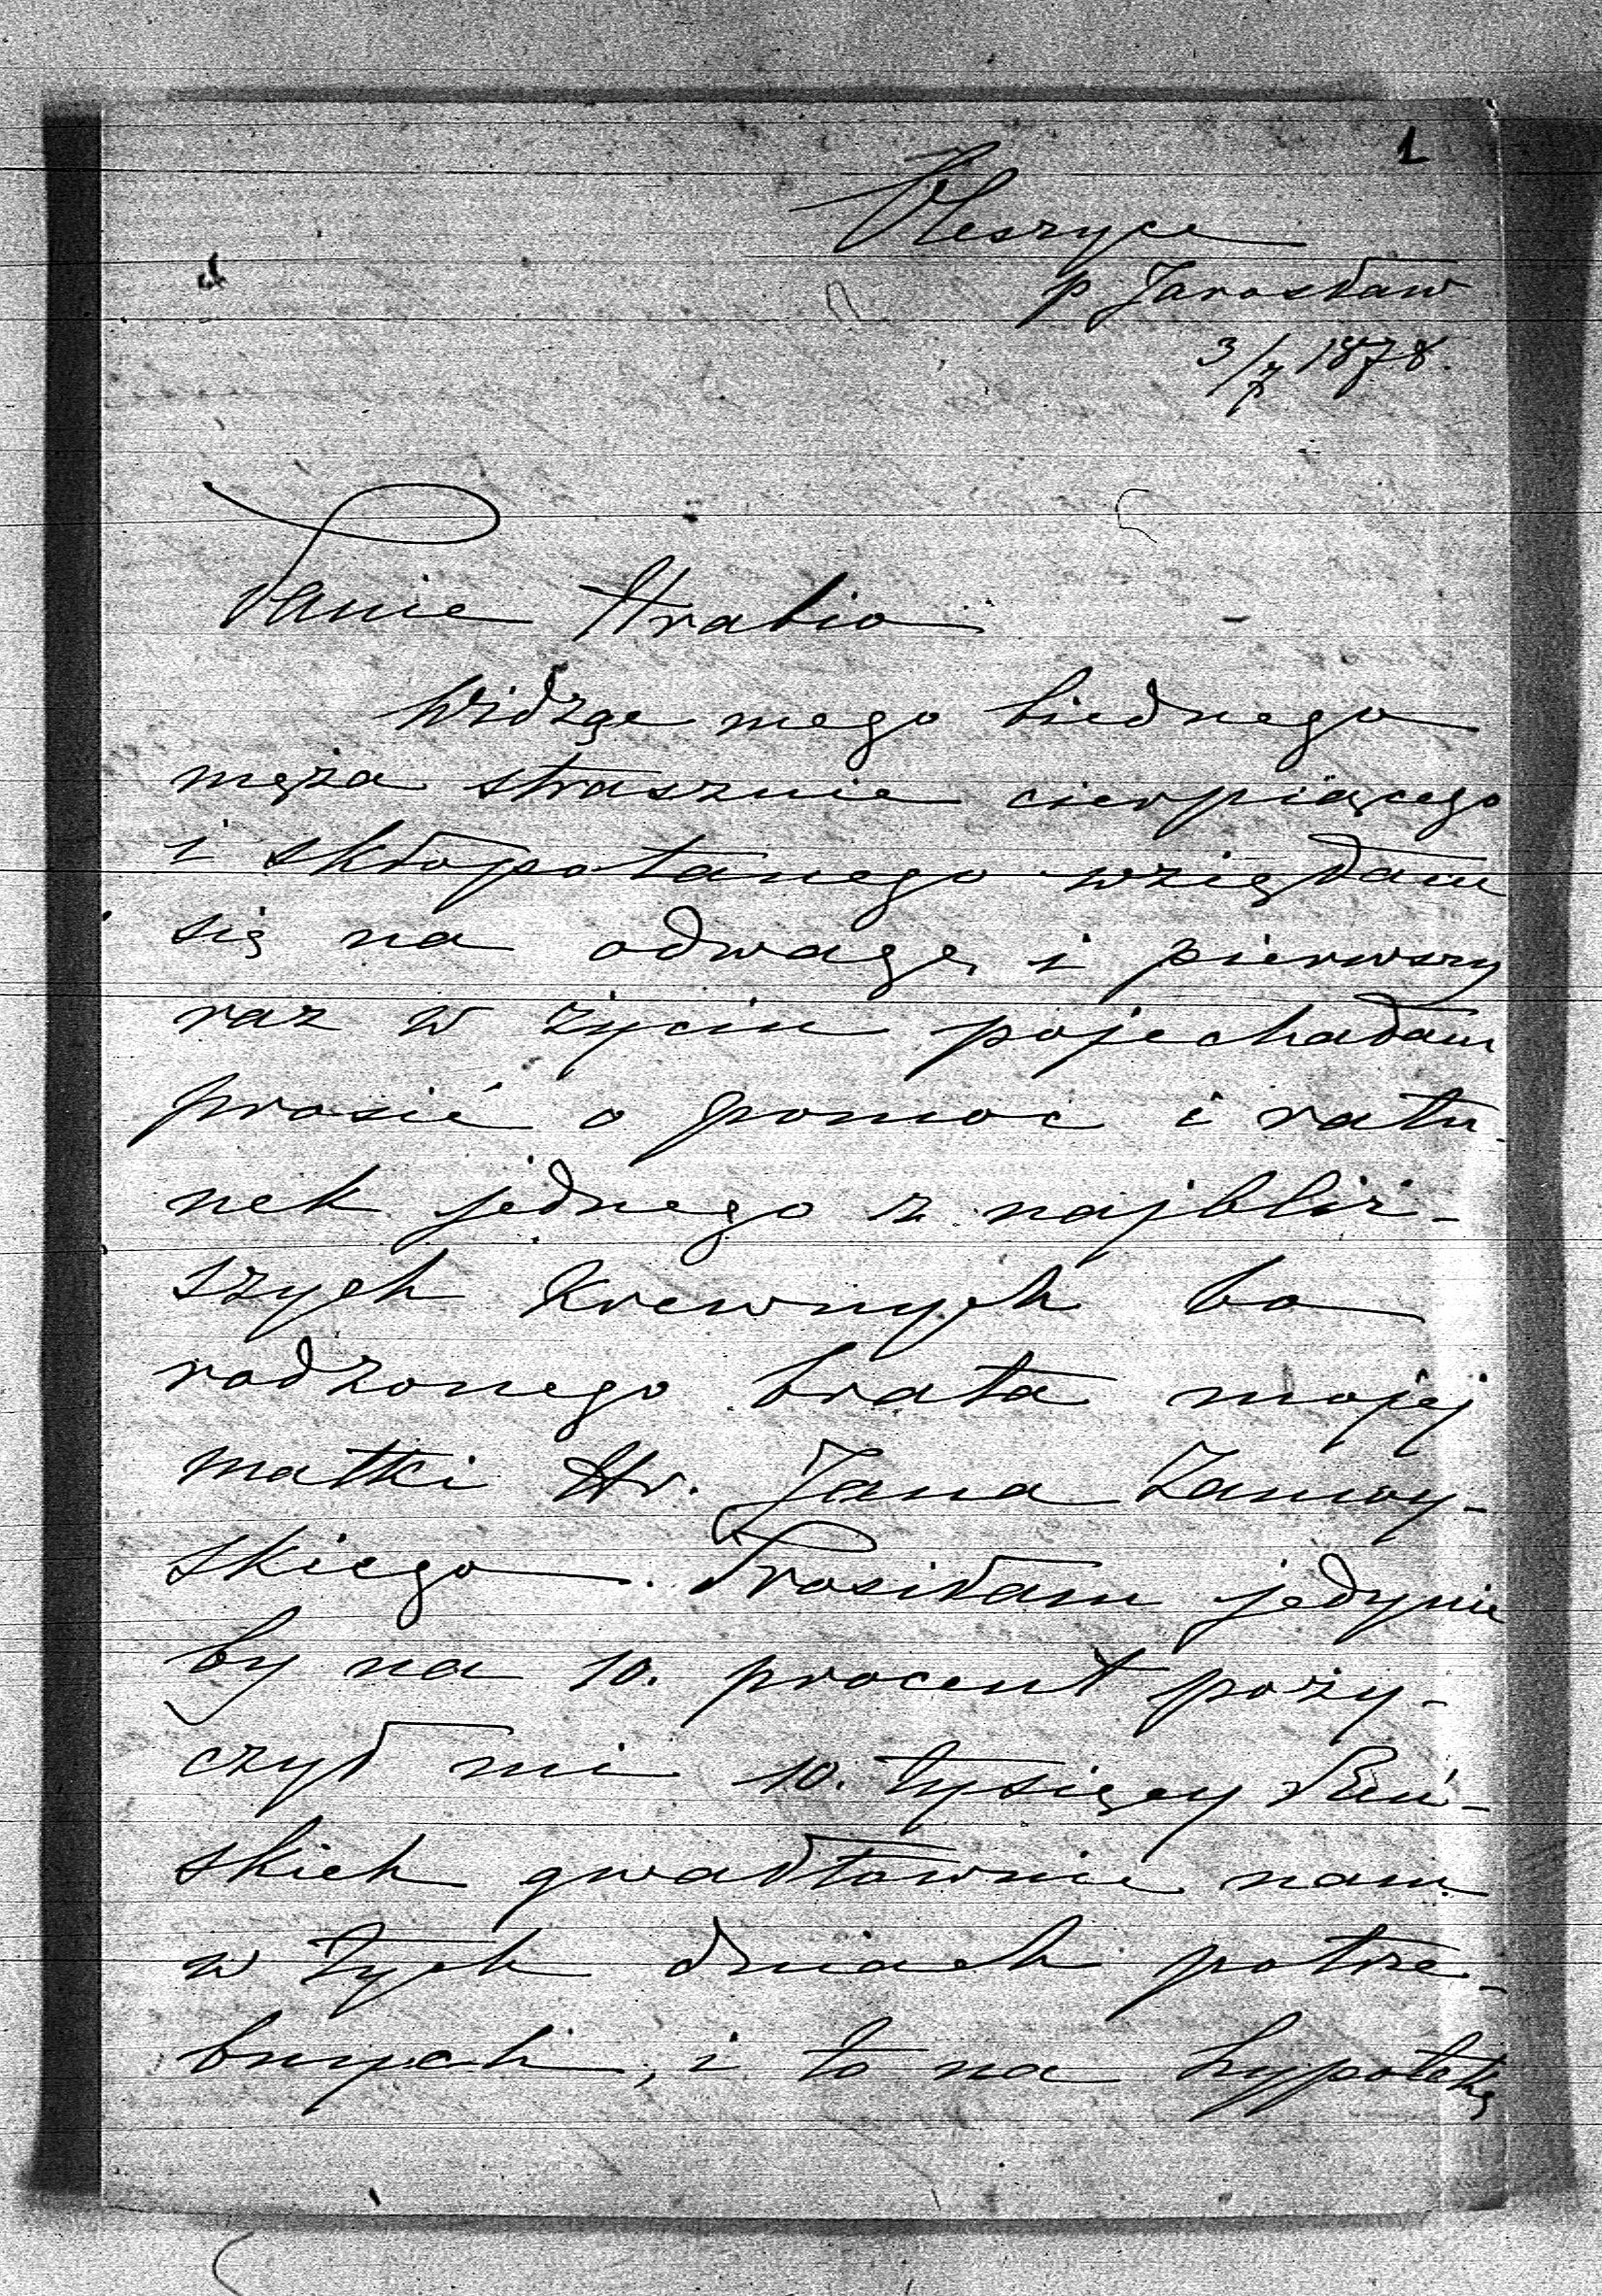 1
Oleszyce
p Jarosław
3/7 1878.
Panie Hrabio
Widząc mego biednego
męża strasznie cierpiącego
i skłopotanego wzięłam
się na odwagę i pierwszy
raz w życiu pojechałam
prosić o pomoc i ratu-
nek jednego z najbliż-
szych krewnych bo
rodzonego brata mojej
matki Hr. Jana Zamoy-
skiego. Prosiłam jedynie
by na 10. procent poży-
czył mi 10. tysięcy Reń-
skich gwałtownie nam
w tych dniach potrze-
bnych, i to na hypotekę